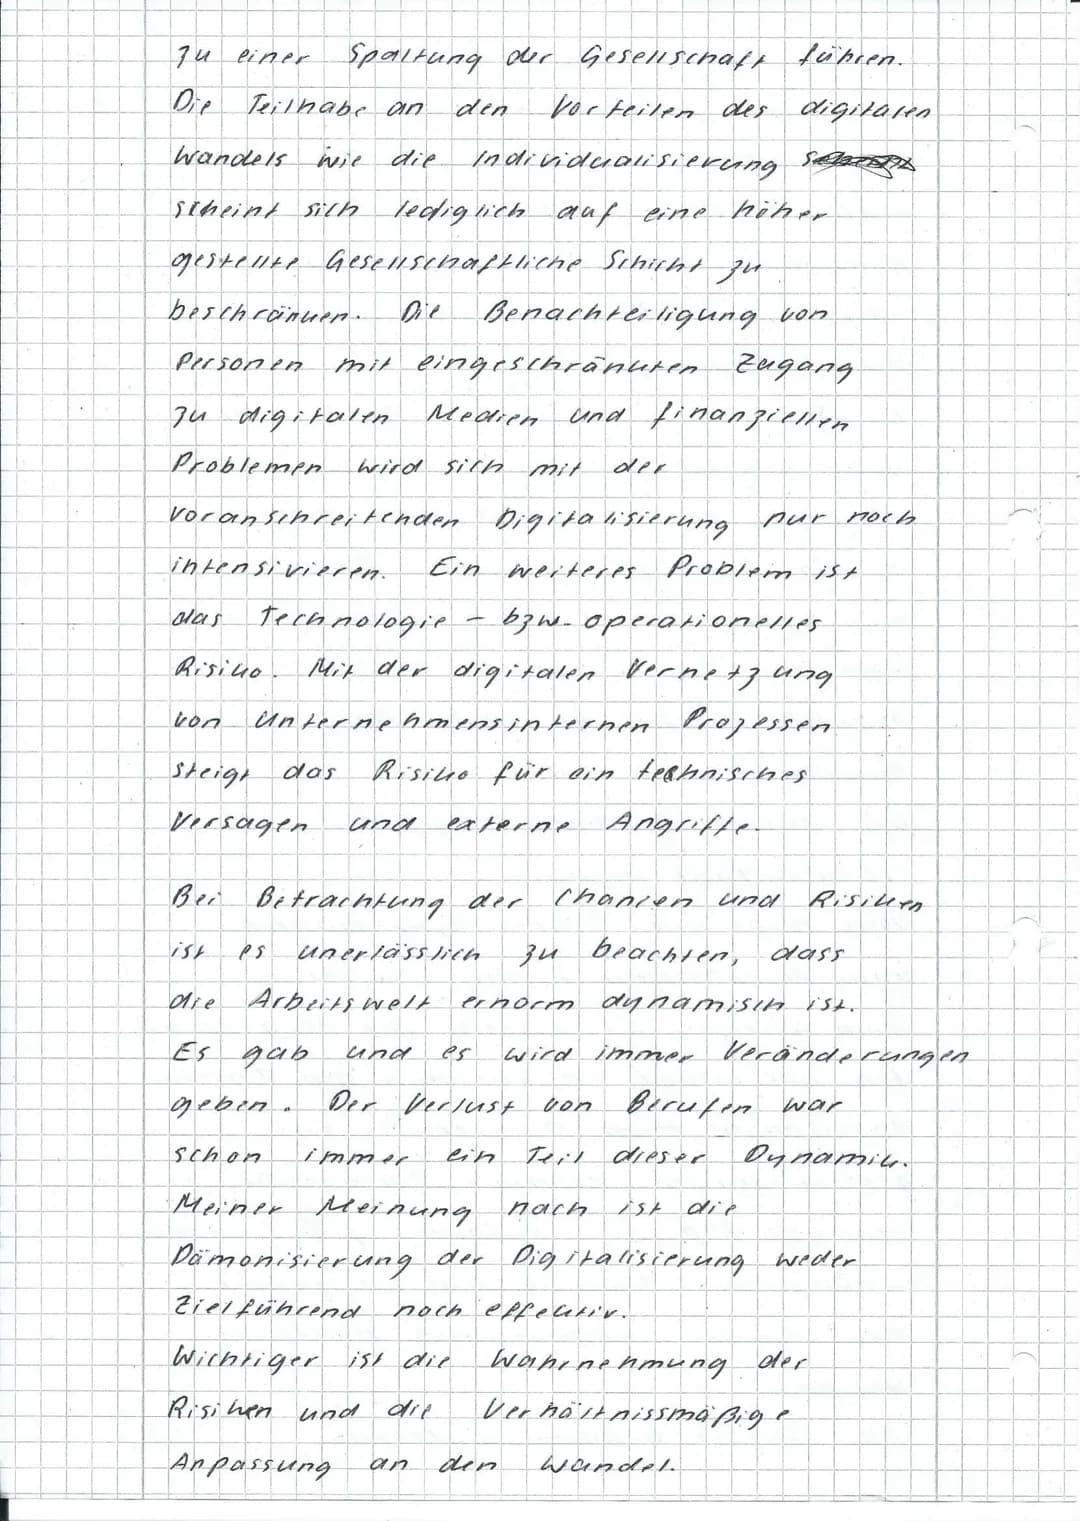 zu einer Spaltung der Gesellschaft führen.
Die Teilhabe an den Vorteilen des digitalen
Wandels wie die Individualisierung
scheint sich lediglich auf eine höher
gestellte Gesellschaftliche Schicht zu
beschränken. Die Benachteiligung von
Personen mit eingeschränkten Zugang
zu digitalen Medien und finanziellen
Problemen wird sich mit der
voranschreitenden Digitalisierung nur noch
intensivieren. Ein weiteres Problem ist
das Technologie- bzw. operationelles
Risiko. Mit der digitalen Vernetzung
von Unternehmensinternen Prozessen
steigt das Risiko für ein technisches
Versagen und externe Angriffe.
Bei Betrachtung der Chancen und Risiken
ist es unerlässlich zu beachten, dass
die Arbeitswelt ernorm dynamisch ist.
Es gab und es wird immer Veränderungen
geben. Der Verlust von Berufen war
schon immer ein Teil dieser Dynamik.
Meiner Meinung nach ist die
Dämonisierung der Digitalisierung weder
Zielführend noch effektiv.
Wichtiger ist die Wahrnehmung der
Risiken und die Verhältnissmäßige
Anpassung an den Wandel.